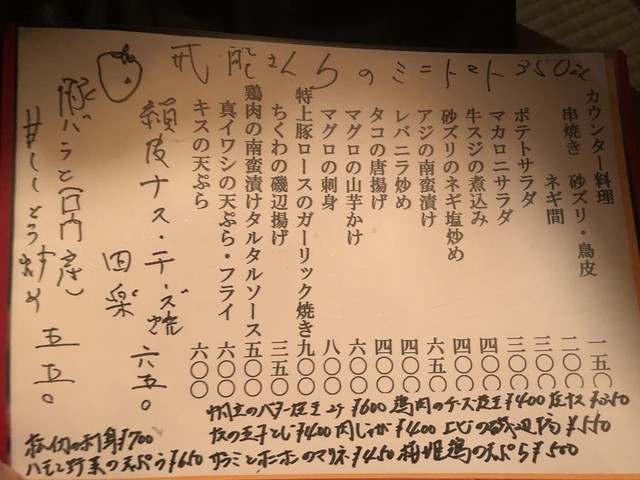 さんちのミニトマト350
カウンター料理
串焼き 砂ズリ・鳥皮 一五〇
ネギ間 二〇〇
ポテトサラダ 三〇〇
マカロニサラダ 三〇〇
牛スジの煮込み 四〇〇
砂ズリのネギ塩炒め 四〇〇
アジの南蛮漬け 六五〇
レバニラ炒め 四〇〇
タコの唐揚げ 四〇〇
マグロの山芋かけ 六〇〇
マグロの刺身 八〇〇
特上豚ロースのガーリック焼き 九〇〇
ちくわの磯辺揚げ 三五〇
鶏肉の南蛮漬けタルタルソース 五〇〇
真イワシの天ぷら・フライ 六〇〇
キスの天ぷら 六〇〇
皮ナス・チーズ焼 六五〇
田楽
豚バラと(口内産)
ししとう炒め 五五〇
帆立のバター焼き 2ケ ¥600 鶏肉のチーズ焼き ¥400
玉子とじ ¥400 肉じゃが ¥400 ¥550
刺身 ¥700
ハモと野菜の天ぷら ¥650 サラミとホーホーのマリネ ¥450 鶏の天ぷら ¥500